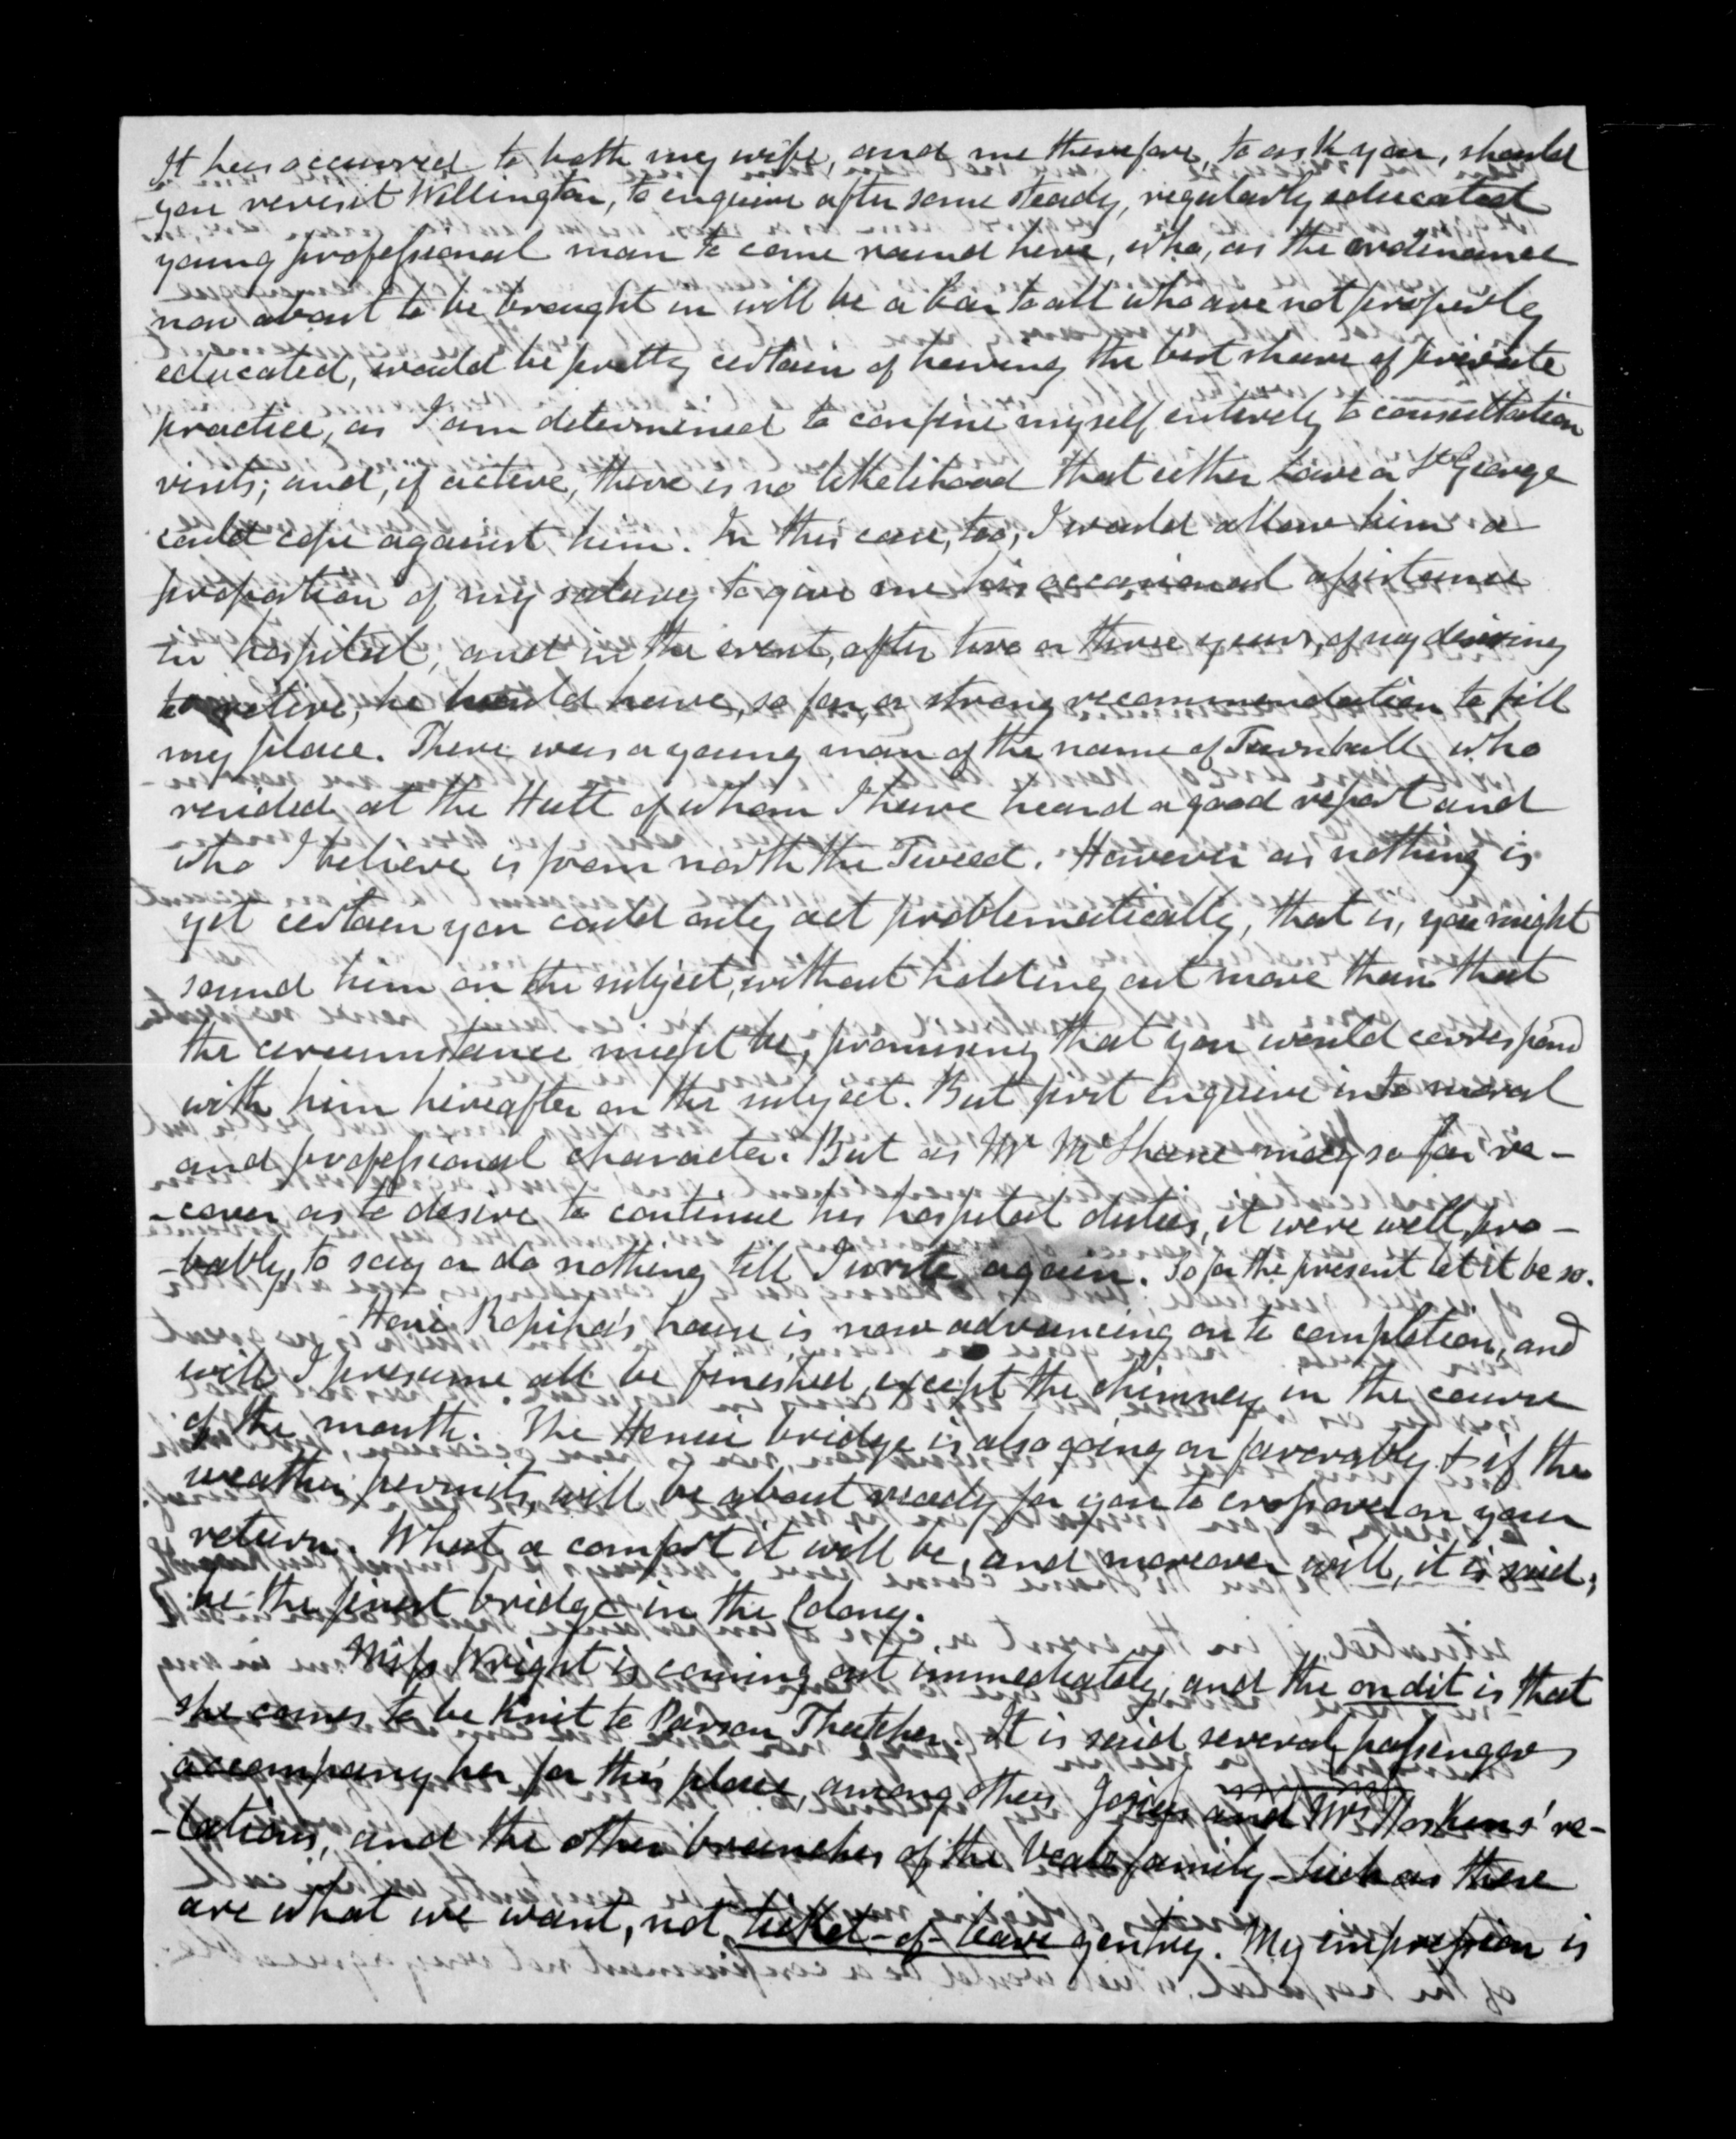 It has occurred to both my wife, and me therefore, to ask you, should
you revisit Wellington, to enquire after some steady, regularly educated
young professional man to come round here, who, as the ordinance
now about to be brought in will be a bar to all who are not properly
educated, would be pretty certain of having the best share of private
practice, as I am determined to confine myself entirely to consultation
visits; and, if active, there is no likelihood that either or St George
could cope against him. In this case, too, I would allow him a
proportion of my salary to give me his occasional assistance
in hospital, and in the event, after two or three years, of my desiring
to retire, he would have, so far, a strong recommendation to fill
my place. There was a young man of the name of Turnbull who
resided at the Hutt of whom I have heard a good report and
who I believe is from north the Tweed. However as nothing is
yet certain you could only act problematically, that is, you might
sound him on the subject, without holding out more than that
the circumstance might be, promising that you would correspond
with him hereafter on the subject. But first enquire into moral
and professional character. But as Mr McShane may so far re-
-cover as to desire to continue his hospital duties, it were well, pro-
-bably, to say or do nothing till I write again. So for the present let it be so.
Honi Ropiha's house is now advancing on to completion, and
will I presume all be finished, except the chimney in the course
of the month. The Henui bridge is also going on favorably & if the
weather permits, will be about ready for you to cross over on your
return. What a comfort it will be, and moreover will, it is said,
be the finest bridge in the Colony.
Miss Wright is coming out immediately, and the ondit is that
she comes to be Knit to Parson Thatcher. It is said several passengers
accompany her for this place, among others Josiah and Mrs Hoskins' re-
-lations, and the other branches of the Veale family - Such as these
are what we want, not ticket-of-leave gentry. My impression is